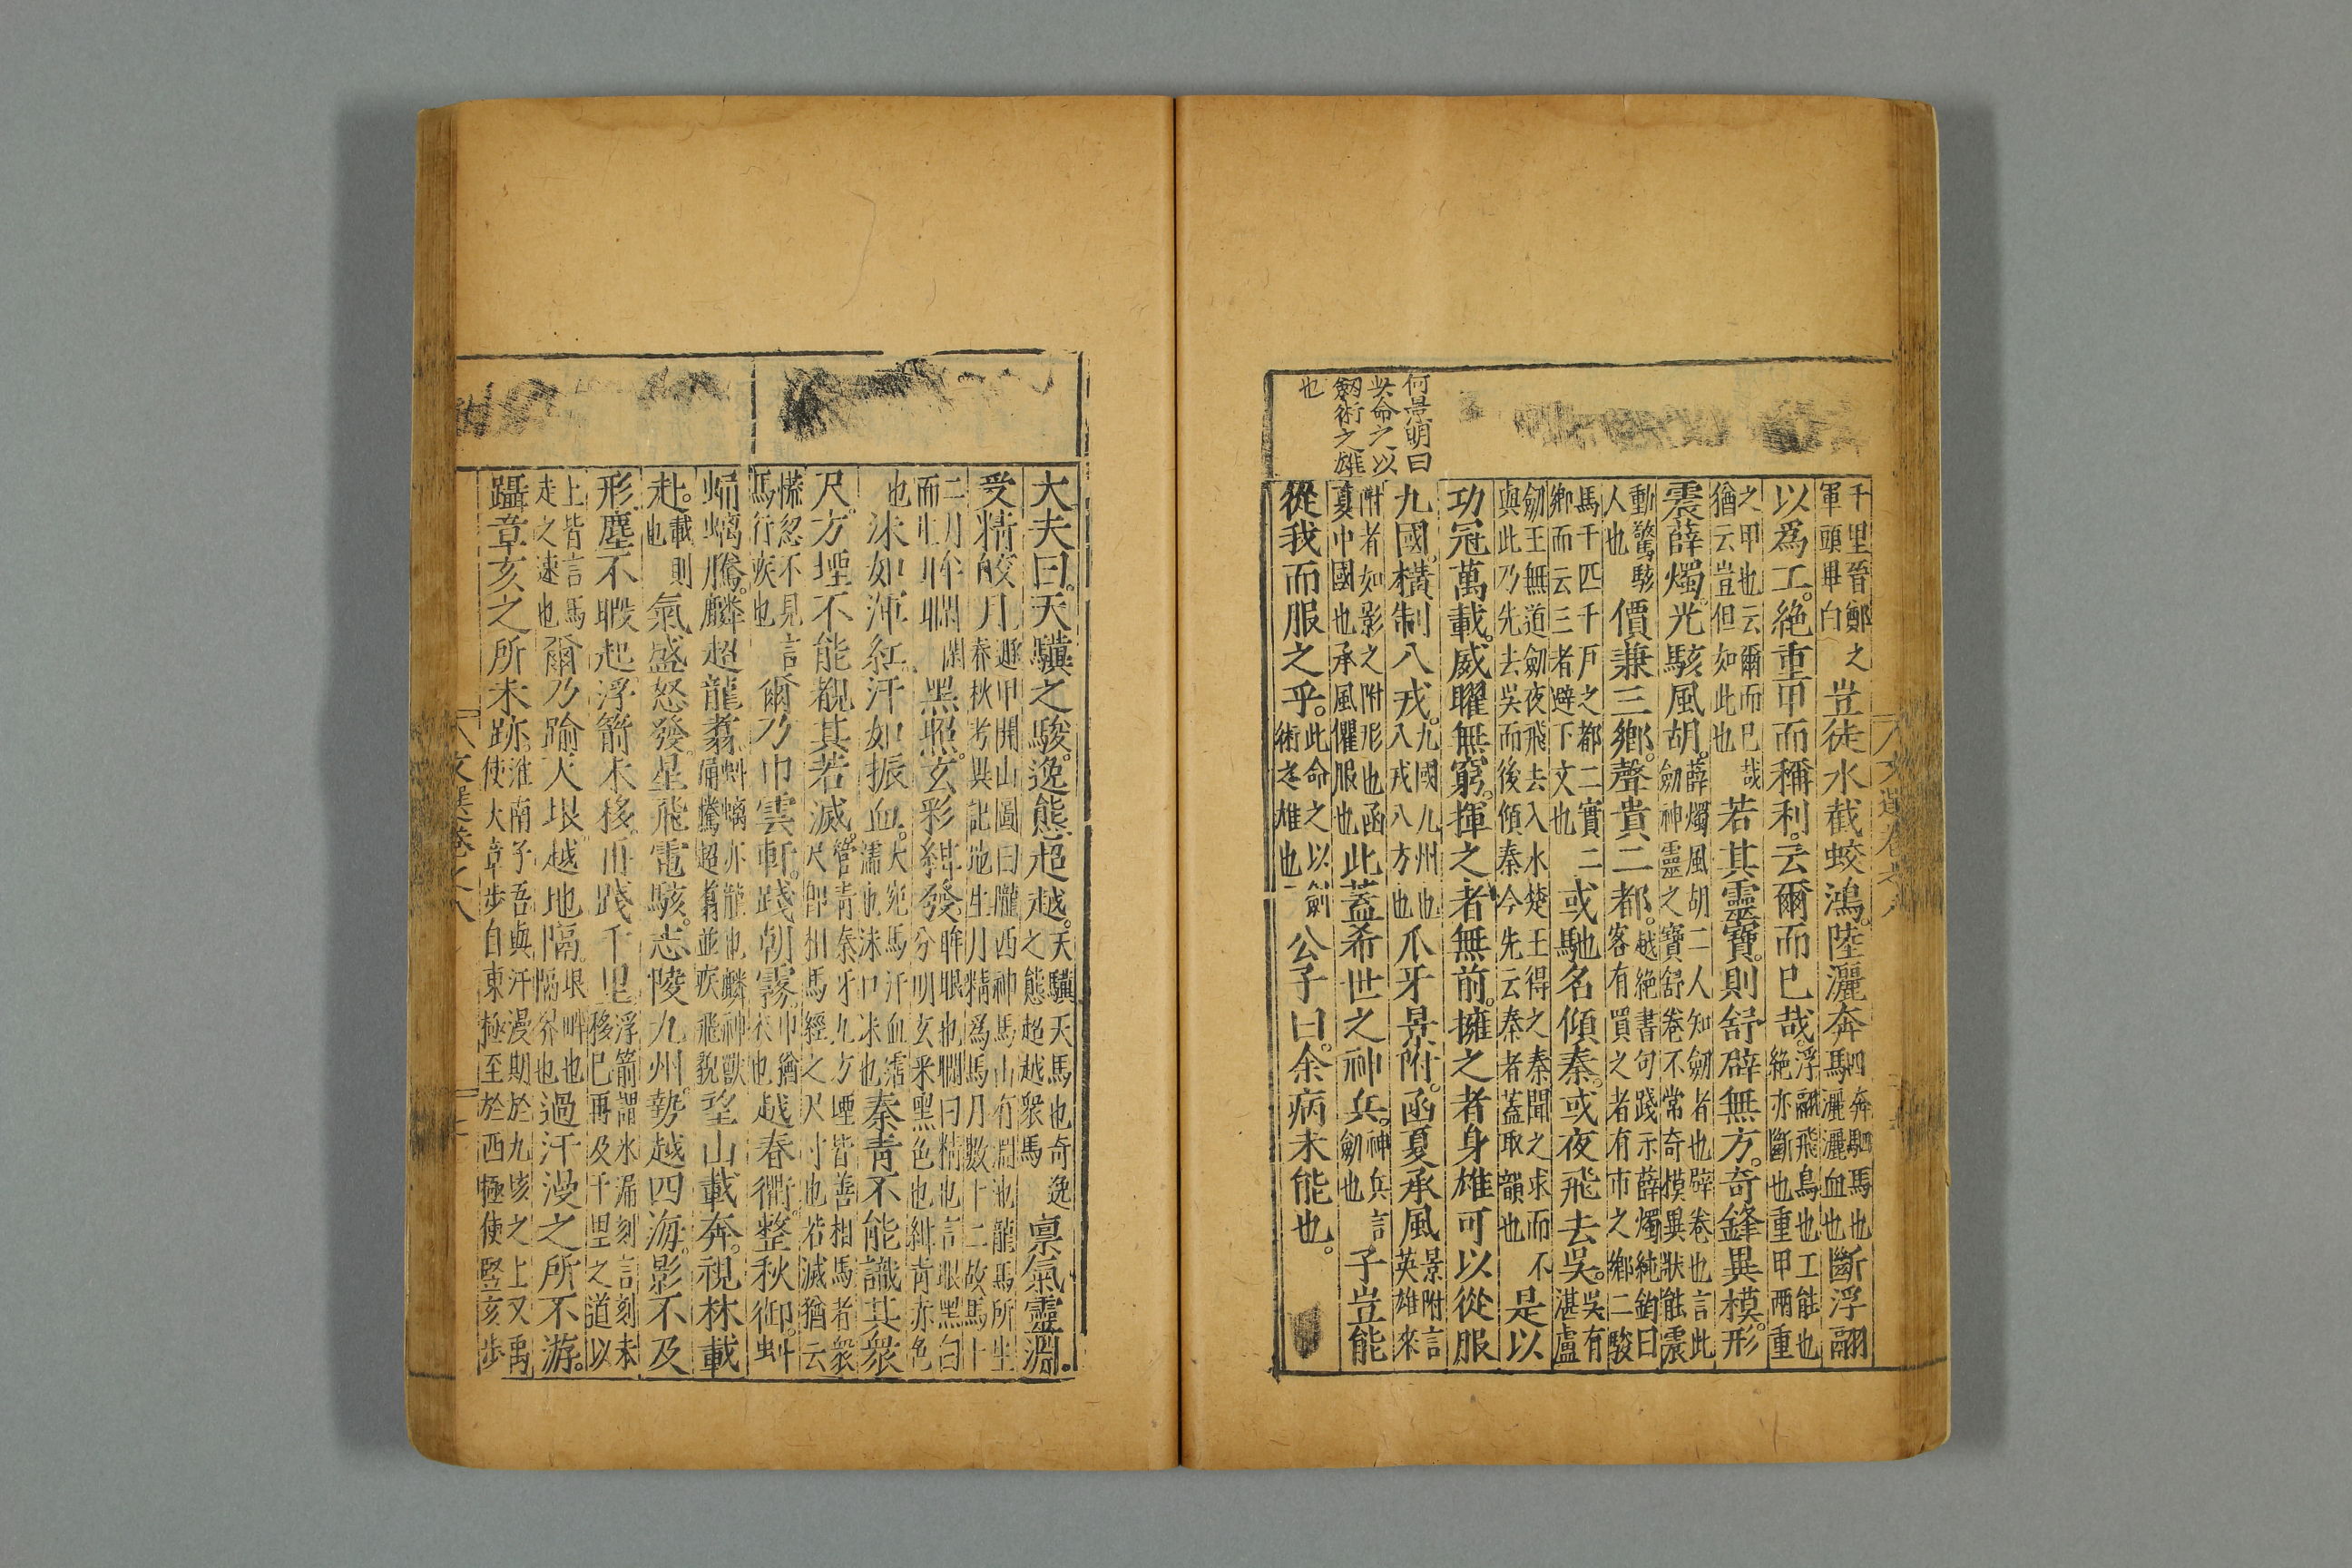 何景明曰
此命之以
劔術之雄
也
千里晉鄭之軍頭畢白豈徒水截蛟鴻。陸灑奔駟奔駟馬也灑灑血也斷浮翮
以爲工。絶重甲而稱利。云爾而已哉。浮翮飛鳥也工能也絶亦斷也重甲兩重
之甲也云爾而已哉猶云豈但如此也若其靈寶。則舒辟無方。奇鋒異模。形
震薛燭。光駭風胡。薛燭風胡二人知劔者也辟卷也言此劔神靈之寶舒卷不常奇模異狀能震
動驚駭人也價兼三鄉。聲貴二都。越絶書句踐示薛燭純鈞曰客有買之者有市之鄉二駿
馬千匹千戸之都二實二鄉而云三者避下文也或馳名傾秦。或夜飛去吳。吳有湛盧
劔王無道劔夜飛去入水楚王得之秦聞之求而不與此乃先去吳而後傾秦今先云秦者蓋取韻也是以
功冠萬載。威曜無窮。揮之者無前。擁之者身雄可以從服
九國。横制八戎。九國九州也八戎八方也爪牙景附。函夏承風景附言英雄來
附者如影之附形也函夏中國也承風懼服也此蓋希世之神兵。神兵言劔也子豈能
從我而服之乎。此命之以劍術之雄也公子曰。余病未能也。
文選卷之八
大夫曰。天驥之駿。逸態超越。天驥天馬也奇逸之態超越衆馬禀氣靈淵。
受精皎月遯甲開山圖曰隴西神馬山有淵池龍馬所生春秋考異記地生月精爲馬月數十二故馬十
二月而生眸𥈭黑照。玄彩紺發。眸眼也𥈭曰精也言眼黑白分明玄采黑色也紺青赤色
也沫如渾紅。汗如振血。大宛馬汗血霑濡也沫口沫也秦青不能識其衆
尺。方堙不能覩其若滅。管青秦牙九方堙皆善相馬者衆尺即相馬經之尺寸也若滅猶云
慌忽不見言馬行疾也爾乃巾雲軒。踐朝霧。巾猶衣也越春衢。整秋御。虯
螭騰。麟超龍翥。虯螭亦龍也麟神獸踊騰超翥並疾飛貌望山載奔。視林載
赴。載則也氣盛怒發。星飛電駭。志陵九州。勢越四海。影不及
形。塵不暇起。浮箭未移。再踐千里。浮箭謂水漏刻言刻未移已再及千里之道以
上皆言馬走之速也爾乃踰天垠。越地隔。垠畔也隔界也過汗漫之所不游。
躡章亥之所未跡。淮南子吾與汗漫期於九垓之上又禹使大章步自東極至於西極使竪亥步
文選卷之八